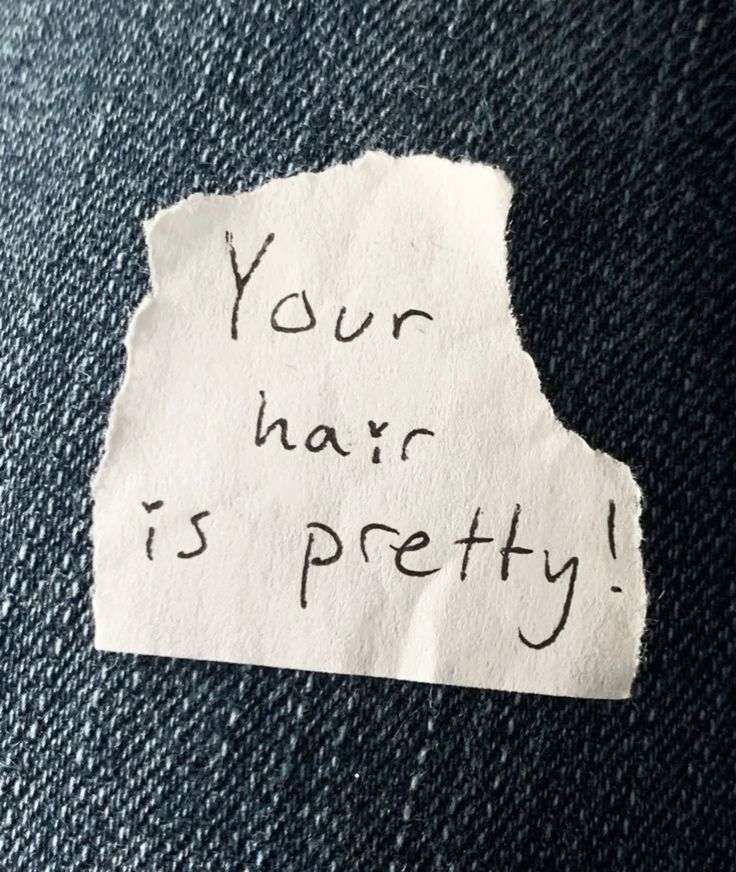 Your
hair
is pretty!